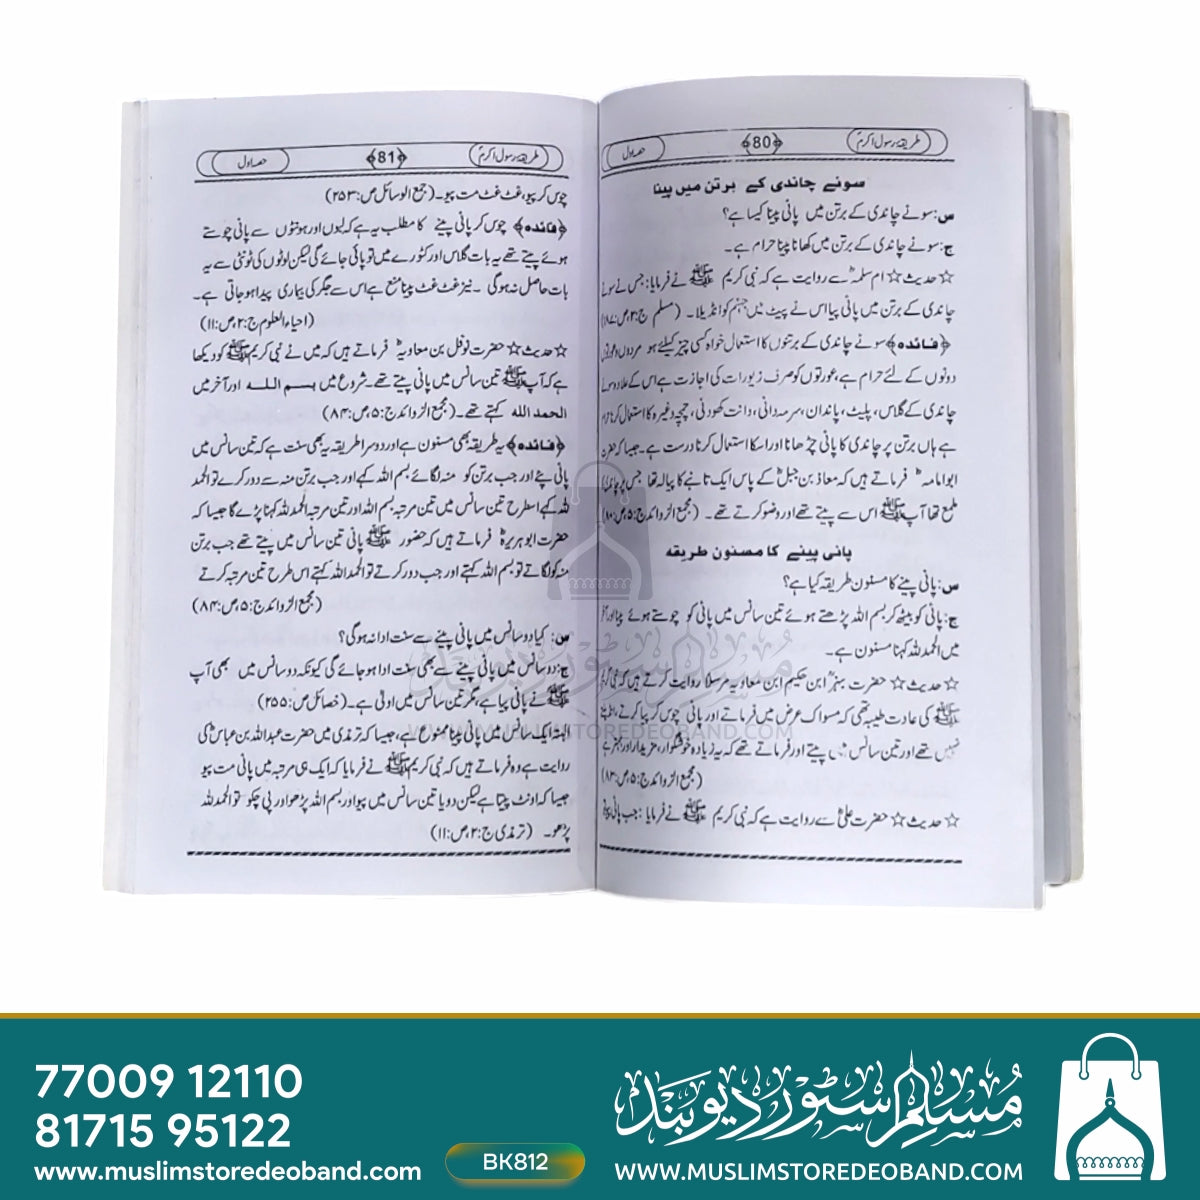 طریقۂ رسول اکرمؐ
﴿80﴾
حصہ اول
سونے چاندی کے برتن میں پینا
س: سونے چاندی کے برتن میں پانی پینا کیسا ہے؟
ج: سونے چاندی کے برتن میں کھانا پینا حرام ہے۔
☆ حدیث ☆ ام سلمہؓ سے روایت ہے کہ نبی کریم ﷺ نے فرمایا: جس نے سونے
چاندی کے برتن میں پانی پیا اس نے پیٹ میں جہنم کو انڈیلا۔ (مسلم ج:۲،ص:۱۸۷)
﴿فائدہ﴾ سونے چاندی کے برتنوں کا استعمال خواہ کسی چیز کیلئے ہو مردوں
دونوں کے لئے حرام ہے، عورتوں کو صرف زیورات کی اجازت ہے اس کے علاوہ سونے
چاندی کے گلاس، پلیٹ، پاندان، سرمہ دانی، دانت کھودنی، چمچہ وغیرہ کا استعمال کرنا حرام
ہے ہاں برتن پر چاندی کا پانی چڑھانا اور اسکا استعمال کرنا درست ہے۔ جیسا کہ حضرت
ابو امامہؓ فرماتے ہیں کہ معاذ بن جبلؓ کے پاس ایک تانبے کا پیالہ تھا جس پر چاندی کا
ملمع تھا آپ ﷺ اس سے پیتے تھے اور وضو کرتے تھے۔ (مجمع الزوائد ج:۵،ص:۸۰)
پانی پینے کا مسنون طریقہ
س: پانی پینے کا مسنون طریقہ کیا ہے؟
ج: پانی کو بیٹھ کر بسم اللہ پڑھتے ہوئے تین سانس میں پانی کو چوستے ہوئے پینا اور آخر
میں الحمد للہ کہنا مسنون ہے۔
☆ حدیث ☆ حضرت بہزؓ ابن حکیم ابن معاویہ مرسلا روایت کرتے ہیں کہ نبی کریم
ﷺ کی عادت طیبہ تھی کہ مسواک عرض میں فرماتے اور پانی چوس کر پیا کرتے،
نہیں تھے اور تین سانس میں پیتے اور فرماتے تھے کہ یہ زیادہ خوشگوار، مزیدار اور بہتر ہے
(مجمع الزوائد ج:۵،ص:۸۳)
☆ حدیث ☆ حضرت علیؓ سے روایت ہے کہ نبی کریم ﷺ نے فرمایا: جب پانی پیو تو
طریقۂ رسول اکرمؐ
﴿81﴾
حصہ اول
چوس کر پیو، غٹ غٹ مت پیو۔ (جمع الوسائل ص:۲۵۳)
﴿فائدہ﴾ چوس کر پانی پینے کا مطلب یہ ہے کہ لبوں اور ہونٹوں سے پانی چوستے
ہوئے پیتے تھے یہ بات گلاس اور کٹورے میں تو پائی جائے گی لیکن لوٹوں کی ٹونٹی سے یہ
بات حاصل نہ ہوگی ۔ نیز غٹ غٹ پینا منع ہے اس سے جگر کی بیماری پیدا ہو جاتی ہے۔
(احیاء العلوم ج:۲،ص:۱۱)
☆ حدیث ☆ حضرت نوفل بن معاویہؓ فرماتے ہیں کہ میں نے نبی کریم ﷺ کو دیکھا
ہے کہ آپ ﷺ تین سانس میں پانی پیتے تھے۔ شروع میں بسم اللہ اور آخر میں
الحمد اللہ کہتے تھے۔ (مجمع الزوائد ج:۵،ص:۸۴)
﴿فائدہ﴾ یہ طریقہ بھی مسنون ہے اور دوسرا طریقہ یہ بھی سنت ہے کہ تین سانس میں
پانی پئے اور جب برتن کو منہ لگائے بسم اللہ کہے اور جب برتن منہ سے دور کرے تو الحمد
للہ کہے اسطرح تین سانس میں تین مرتبہ بسم اللہ اور تین مرتبہ الحمد للہ کہنا پڑے گا جیسا کہ
حضرت ابو ہریرہؓ فرماتے ہیں کہ حضور ﷺ پانی تین سانس میں پیتے تھے جب برتن
منہ کو لگاتے تو بسم اللہ کہتے اور جب دور کرتے تو الحمد اللہ کہتے اس طرح تین مرتبہ کرتے
(مجمع الزوائد ج:۵،ص:۸۴)
س: کیا دو سانس میں پانی پینے سے سنت ادا نہ ہوگی؟
ج: دو سانس میں پانی پینے سے بھی سنت ادا ہو جائے گی کیونکہ دو سانس میں بھی آپ
ﷺ نے پانی پیا ہے، مگر تین سانس میں اولی ہے۔ (خصائل ص:۲۵۵)
البتہ ایک سانس میں پانی پینا ممنوع ہے، جیسا کہ ترمذی میں حضرت عبد اللہ بن عباسؓ کی
روایت ہے وہ فرماتے ہیں کہ نبی کریم ﷺ نے فرمایا کہ ایک ہی مرتبہ میں پانی مت پیو
جیسا کہ اونٹ پیتا ہے لیکن دو یا تین سانس میں پیو اور بسم اللہ پڑھو اور پی چکو تو الحمد للہ
پڑھو۔ (ترمذی ج:۲،ص:۱۱)
مسلم سٹور دیوبند
WWW.MUSLIMSTOREDEOBAND.COM
77009 12110
81715 95122
www.muslimstoredeoband.com
BK812
مسلم سٹور دیوبند
WWW.MUSLIMSTOREDEOBAND.COM